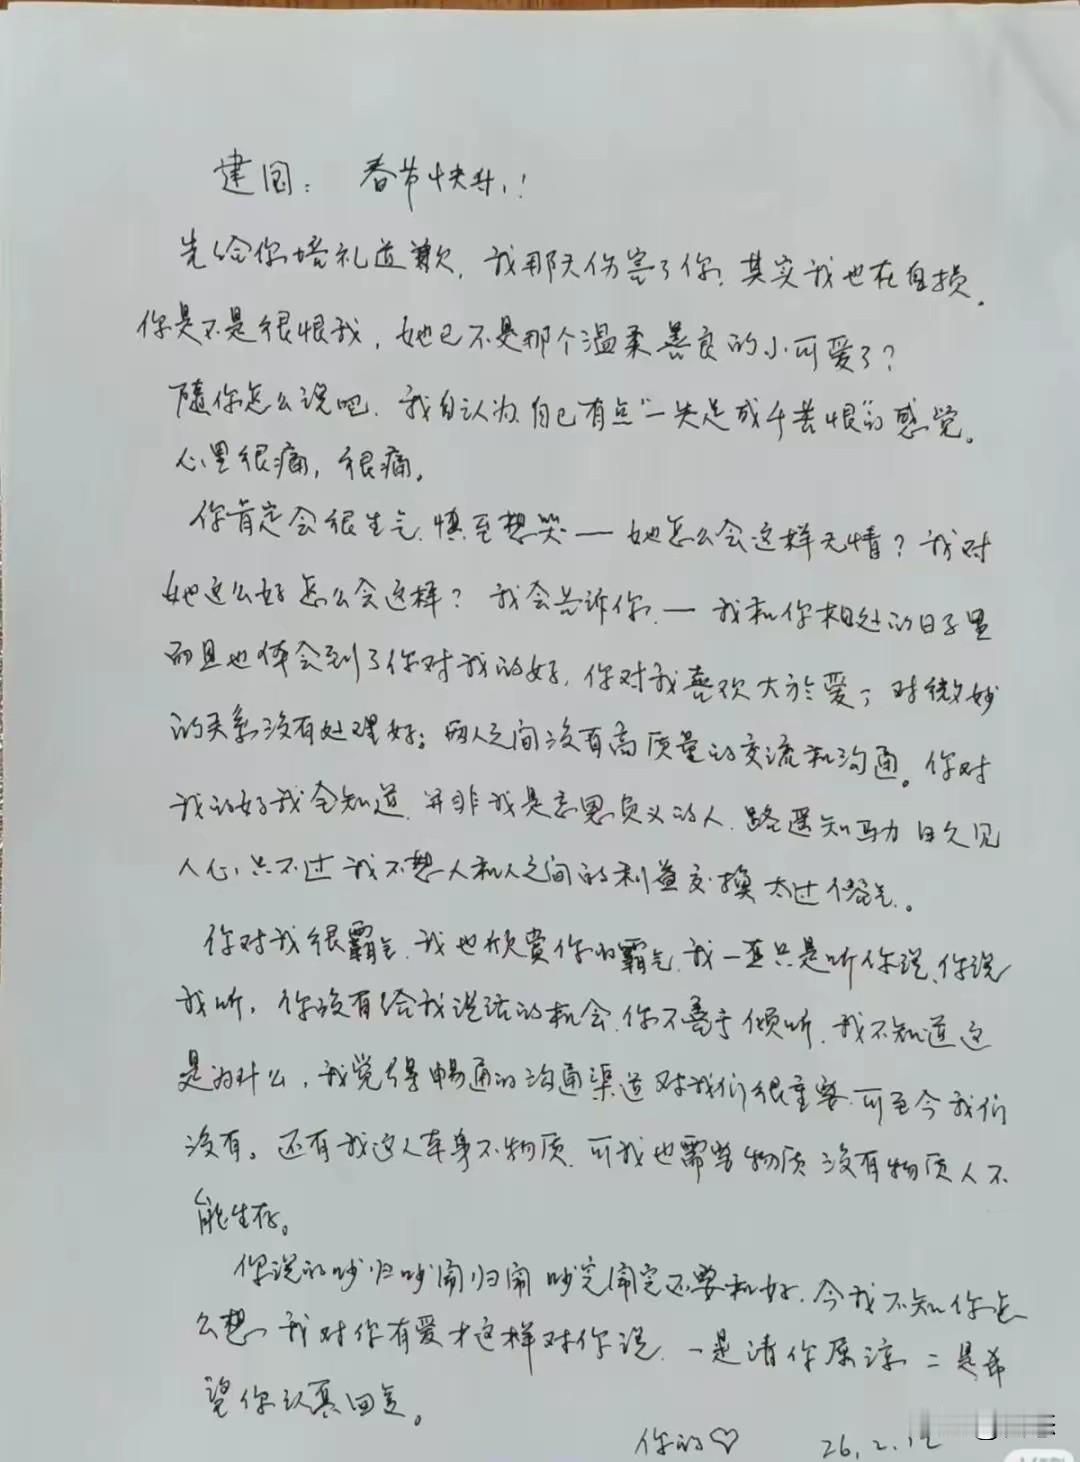 建国： 春节快乐！
先给你培礼道歉，我那天伤害了你，其实我也在自损。
你是不是很恨我，她已不是那个温柔善良的小可爱了？
随你怎么说吧，我自认为自己有点“一失足成千苦恨”的感觉。
心里很痛，很痛。
你肯定会很生气，慎至想哭一她怎么会这样无情？我对
她这么好怎么会这样？我会告诉你，一我和你相处的日子里
而且也体会到了你对我的好，你对我喜欢大於爱，对微妙
的关系没有处理好；两人之间没有高质量的交流和沟通。你对
我的好我全知道，并非我是忘恩负义的人，路遥知马力日久见
人心，只不过我不想人和人之间的利益交换太过俗气。
你对我很霸气，我也欣赏你的霸气，我一直只是听你说、你说
我听，你没有给我说话的机会，你不善于倾听，我不知道这
是为什么，我觉得畅通的沟通渠道对我们很重要，可至今我们
没有。还有我这人本身不物质，可我也需要物质没有物质人不
能生存。
你说的吵归吵闹归闹吵完闹完还要和好，今我不知你怎
么想，我对你有爱才这样对你说，一是请你原谅，二是希
望你认真回复。
你的♡ 26.2.12